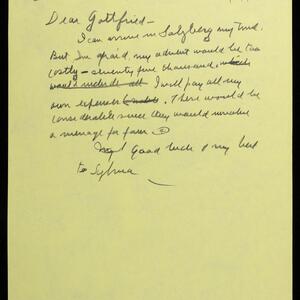 Dear Gottfried —
I can arrive in Salzberg my end.
But I'm afraid, my advent would be too
costly – seventy five thousand, which
would include all I will pay all my
own expenses. These would be
considerable since they would involve
a menage for four
Good luck & my best
to Sylvia